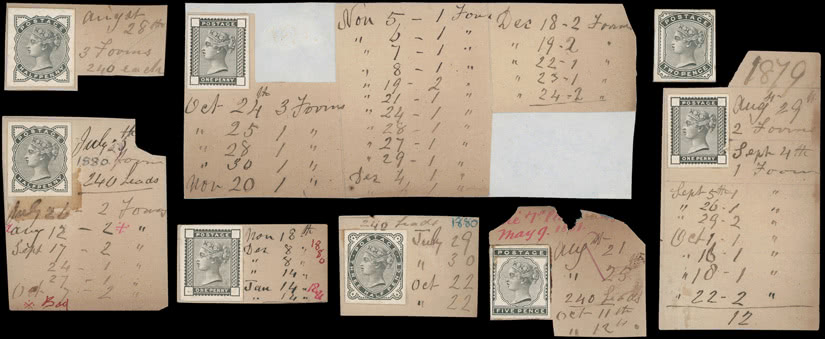 POSTAGE
HALFPENNY
August
28th
3 Forms
240 each
POSTAGE
HALFPENNY
July
1880
240 Leads
July 26 - 2 Forms
Aug 12 - 2 "
Sept 17 - 2 "
24 - 1 "
27 - 1 "
Oct - 2 "
Bad
POSTAGE
ONE PENNY
Oct 24th 3 Forms
" 25 1 "
" 28 1 "
" 30 1 "
Nov 20 1 "
Nov 5 - 1 Forms
" 6 - 1 "
" 7 - 1 "
" 8 - 1 "
" 19 - 2 "
" 21 - 1 "
" 24 - 1 "
" 28 - 1 "
" 27 - 1 "
" 29 - 1 "
Dec 4 1 "
Dec 18 - 2 Forms
" 19 - 2 "
" 22 - 1 "
" 23 - 1 "
" 24 - 2 "
POSTAGE
TWO PENCE
1879
POSTAGE
ONE PENNY
Aug 29th
2 Forms
Sept 4th
1 Form
Sept 5th "
" 26 - 1 "
" 29 - 2 "
Oct 1 - 1 "
" 16 - 1 "
" 18 - 1 "
" 22 - 2 "
12
POSTAGE
ONE PENNY
Nov 18th
Dec 8 "
" 8 "
" 14 "
Jan 14 -
" 14 -
1880
240 Leads 1880
POSTAGE
THREE HALFPENCE
July 29
" 30
Oct 22
" 22
May 9.
POSTAGE
FIVE PENCE
Aug 21
" 25
240 Leads
Oct 11th
" 12th